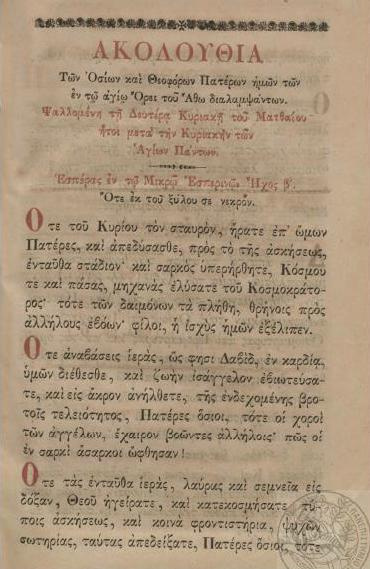 ΑΚΟΛΟΥΘΙΑ
Τῶν Ὁσίων καὶ Θεοφόρων Πατέρων ἡμῶν τῶν
ἐν τῷ ἁγίῳ Ὄρει τοῦ Ἄθω διαλαμψάντων.
Ψαλλομένη τῇ Δευτέρᾳ Κυριακῇ τοῦ Ματθαίου
ἤτοι μετὰ τὴν Κυριακὴν τῶν
Ἁγίων Πάντων.
Ἑσπέρας ἐν τῷ Μικρῷ Ἑσπερινῷ. Ἦχος β'.
Ὅτε ἐκ τοῦ ξύλου σε νεκρόν.
Ὅτε τοῦ Κυρίου τὸν σταυρὸν, ἤρατε ἐπ' ὤμων
Πατέρες, καὶ ἀπεδύσασθε, πρὸς τὸ τῆς ἀσκήσεως,
ἐνταῦθα στάδιον· καὶ σαρκὸς ὑπερήρθητε, Κόσμου
τε καὶ πάσας, μηχανὰς ἐλύσατε τοῦ Κοσμοκράτο-
ρος· τότε τῶν δαιμόνων τὰ πλήθη, θρήνοις πρὸς
ἀλλήλους ἐβόων· φίλοι, ἡ ἰσχὺς ἡμῶν ἐξέλιπεν.
Ὅτε ἀναβάσεις ἱερὰς, ὥς φησι Δαβὶδ, ἐν καρδίᾳ,
ὑμῶν διέθεσθε, καὶ ζωὴν ἰσάγγελον ἐβιωτεύσα-
τε, καὶ εἰς ἄκρον ἀνήλθετε, τῆς ἐνδεχομένης βρο-
τοῖς τελειότητος, Πατέρες ὅσιοι, τότε οἱ χοροὶ
τῶν ἀγγέλων, ἔχαιρον βοῶντες ἀλλήλοις· πῶς οἱ
ἐν σαρκὶ ἄσαρκοι ὤφθησαν!
Ὅτε τὰς ἐνταῦθα ἱερὰς, λαύρας καὶ σεμνεῖα εἰς
δόξαν, Θεοῦ ἠγείρατε, καὶ κατεκοσμήσατε τύ-
ποις ἀσκήσεως, καὶ κοινὰ φροντιστήρια, ψυχῶν
σωτηρίας, ταύτας ἀπεδείξατε, Πατέρες ὅσιοι, τότε